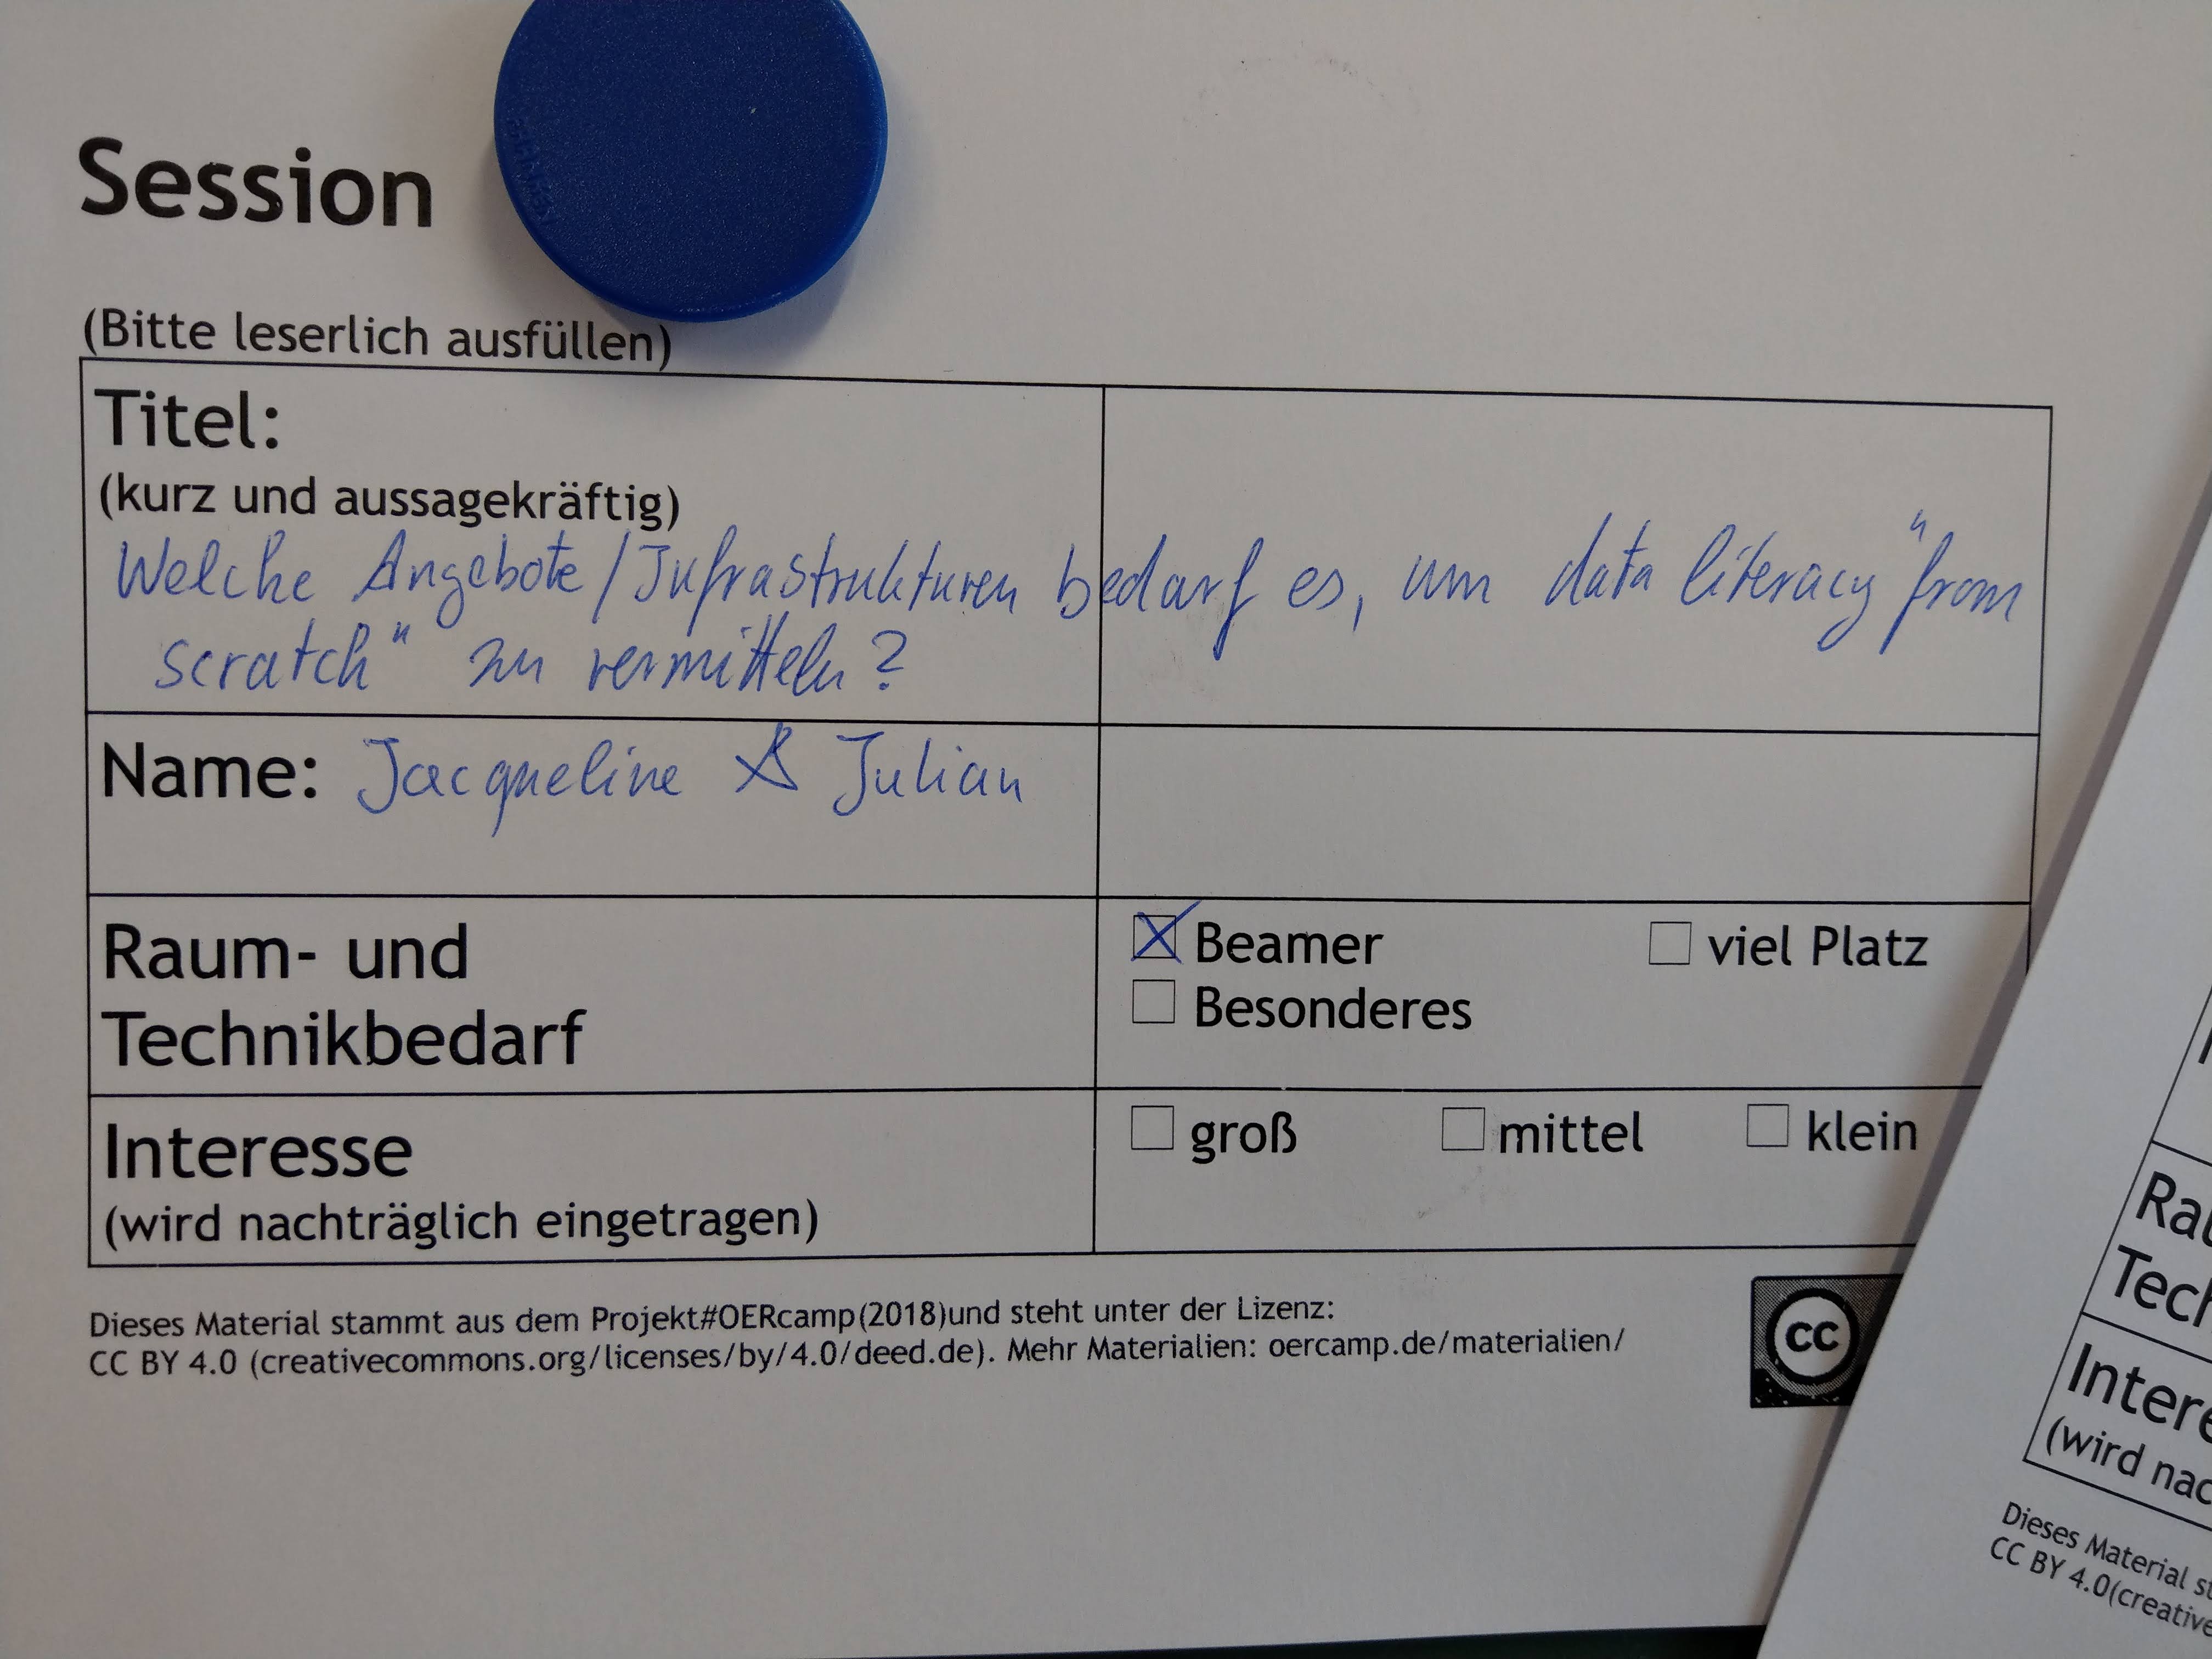 Session
(Bitte leserlich ausfüllen)
Titel:
(kurz und aussagekräftig)
Welche Angebote/Infrastrukturen bedarf es, um data literacy "from
scratch" zu vermitteln?
Name: Jacqueline & Julian
Raum- und
Technikbedarf
Beamer
viel Platz
Besonderes
Interesse
(wird nachträglich eingetragen)
groß
mittel
klein
Dieses Material stammt aus dem Projekt#OERcamp(2018)und steht unter der Lizenz:
CC BY 4.0 (creativecommons.org/licenses/by/4.0/deed.de). Mehr Materialien: oercamp.de/materialien/
cc
Rau
Tech
Intere
(wird nac
Dieses Material st
CC BY 4.0(creative